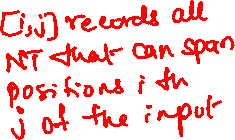 [i,j] records all
NT that can span
positions i th
j of the input